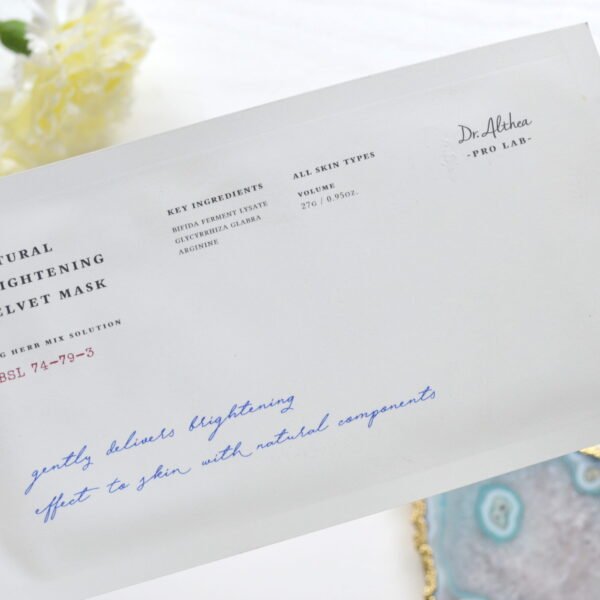 Dr. Althea
-PRO LAB-
ALL SKIN TYPES
VOLUME
27G / 0.95OZ.
KEY INGREDIENTS
BIFIDA FERMENT LYSATE
GLYCYRRHIZA GLABRA
ARGININE
TURAL
IGHTENING
ELVET MASK
G HERB MIX SOLUTION
BSL 74-79-3
gently delivers brightening
effect to skin with natural components